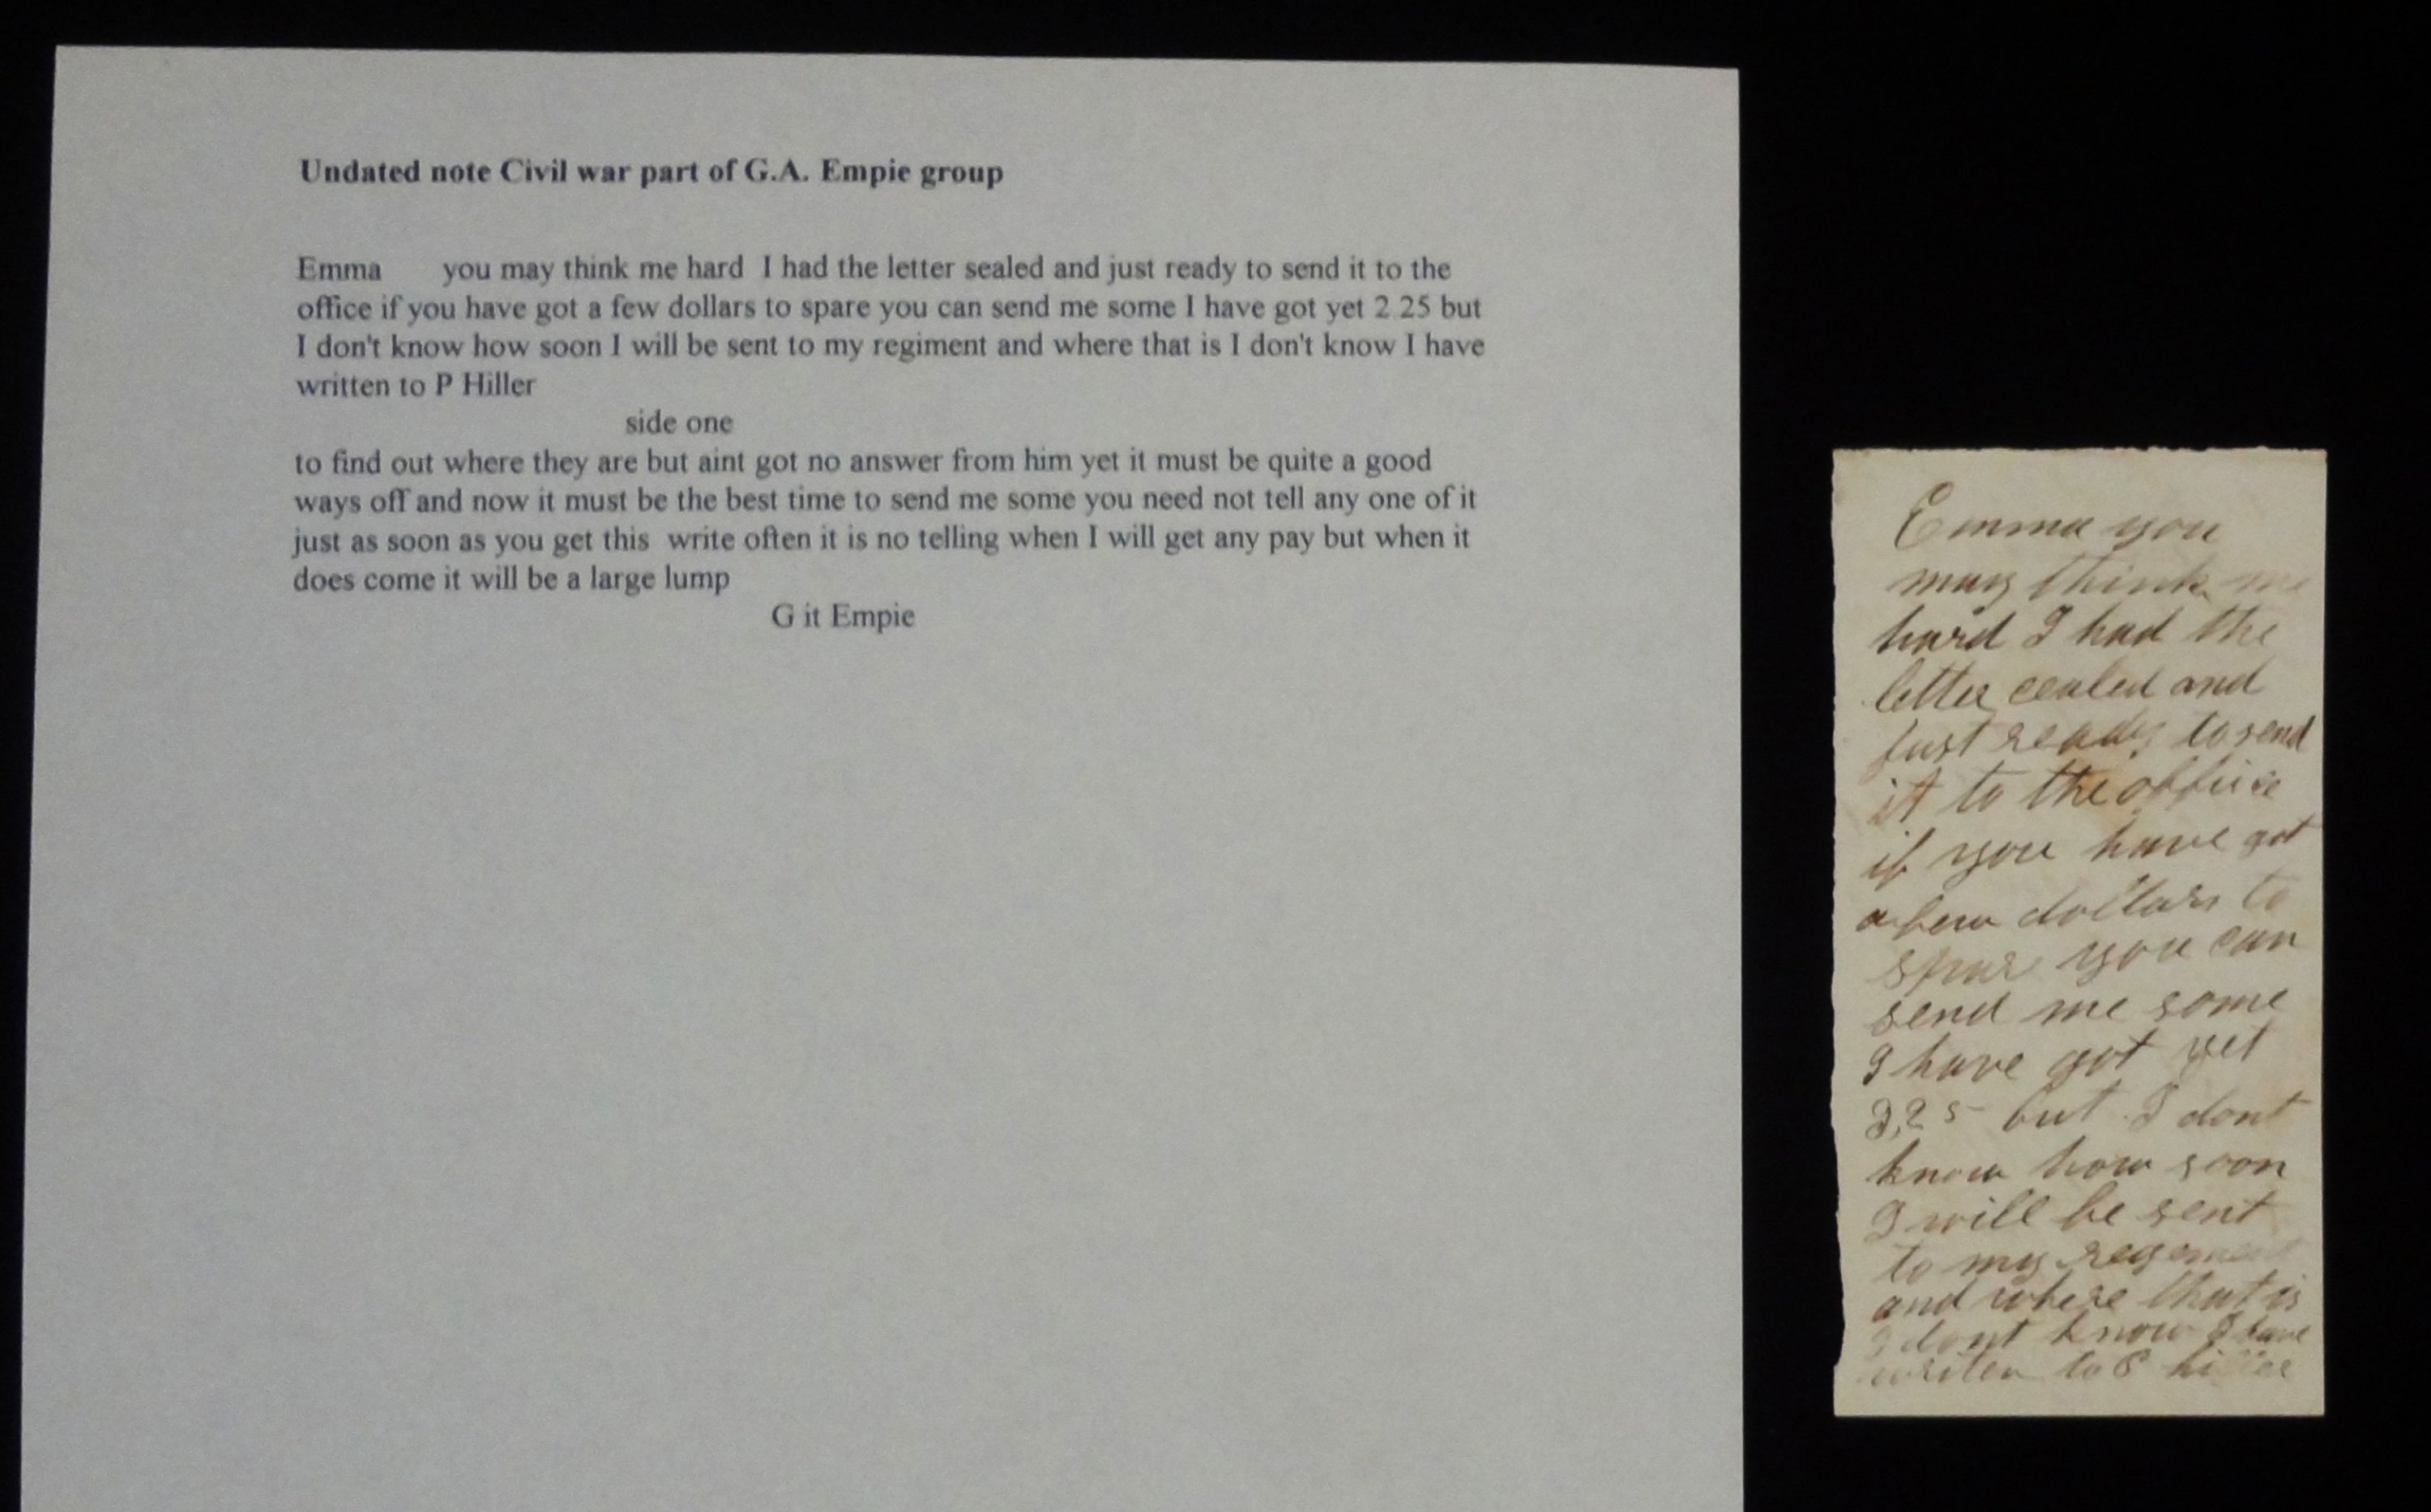 Undated note Civil war part of G.A. Empie group
Emma you may think me hard I had the letter sealed and just ready to send it to the
office if you have got a few dollars to spare you can send me some I have got yet 2.25 but
I don't know how soon I will be sent to my regiment and where that is I don't know I have
written to P Hiller
side one
to find out where they are but aint got no answer from him yet it must be quite a good
ways off and now it must be the best time to send me some you need not tell any one of it
just as soon as you get this write often it is no telling when I will get any pay but when it
does come it will be a large lump
G it Empie
Emma you
may think me
hard I had the
letter cealed and
just ready to send
it to the office
if you have got
a few dollars to
spare you can
send me some
I have got yet
2,25 but I dont
know how soon
I will be sent
to my regement
and where that is
I dont know I have
writen to P hiller